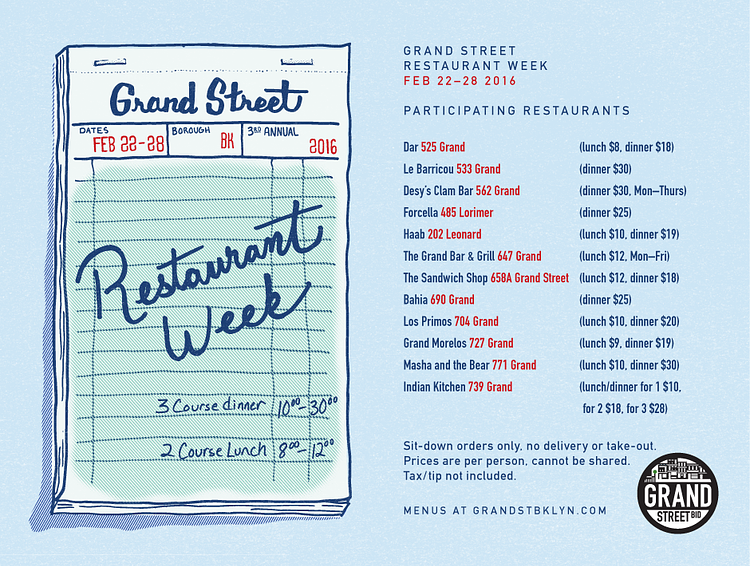 Grand Street
DATES
FEB 22-28
BOROUGH
BK
3RD ANNUAL
2016
Restaurant
Week
3 Course dinner 10⁰⁰-30⁰⁰
2 Course Lunch 8⁰⁰-12⁰⁰
GRAND STREET
RESTAURANT WEEK
FEB 22–28 2016
PARTICIPATING RESTAURANTS
Dar 525 Grand (lunch $8, dinner $18)
Le Barricou 533 Grand (dinner $30)
Desy's Clam Bar 562 Grand (dinner $30, Mon–Thurs)
Forcella 485 Lorimer (dinner $25)
Haab 202 Leonard (lunch $10, dinner $19)
The Grand Bar & Grill 647 Grand (lunch $12, Mon–Fri)
The Sandwich Shop 658A Grand Street (lunch $12, dinner $18)
Bahia 690 Grand (dinner $25)
Los Primos 704 Grand (lunch $10, dinner $20)
Grand Morelos 727 Grand (lunch $9, dinner $19)
Masha and the Bear 771 Grand (lunch $10, dinner $30)
Indian Kitchen 739 Grand (lunch/dinner for 1 $10,
for 2 $18, for 3 $28)
Sit-down orders only, no delivery or take-out.
Prices are per person, cannot be shared.
Tax/tip not included.
MENUS AT GRANDSTBKLYN.COM
GRAND
STREET BID